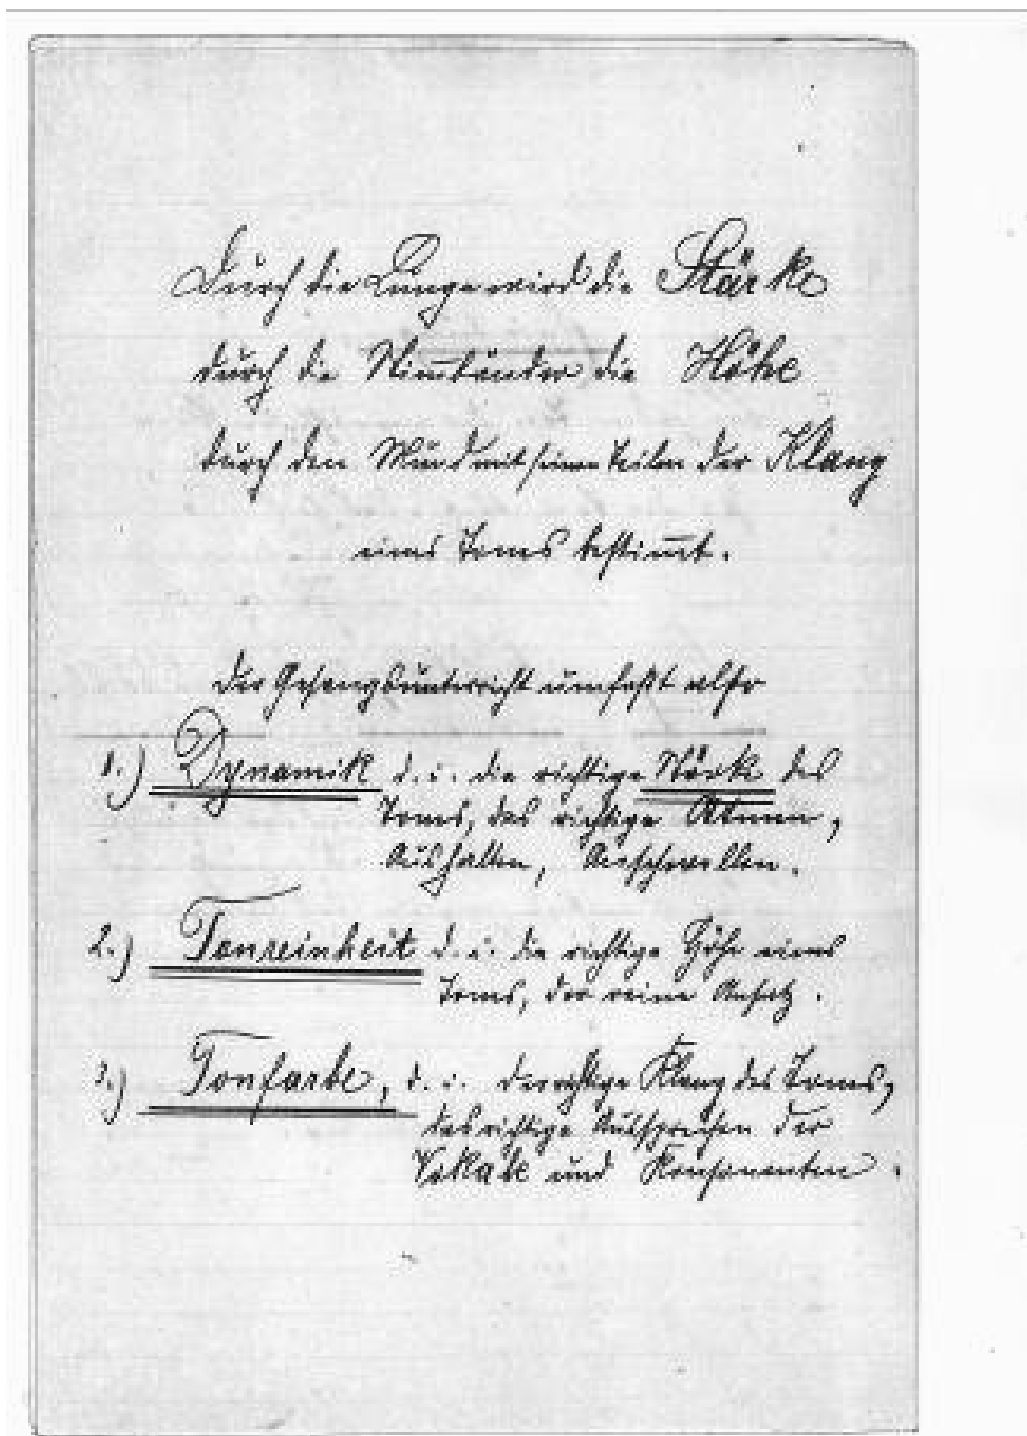 Durch die Lunge wird die Stärke
durch die Stim̄bänder die Höhe
durch den Mund mit seinen Teilen der Klang
eines Tones bestim̄t.
Der Gesangsunterricht umfaßt also
1.) Dynamik d. i. die richtige Stärke des
Tones, das richtige Atmen,
Aushalten, Anschwellen.
2.) Tonreinheit d. i. die richtige Höhe eines
Tones, der reine Ansatz.
3.) Tonfarbe, d. i. der richtige Klang des Tones,
das richtige Aussprechen der
Vokale und Konsonanten.